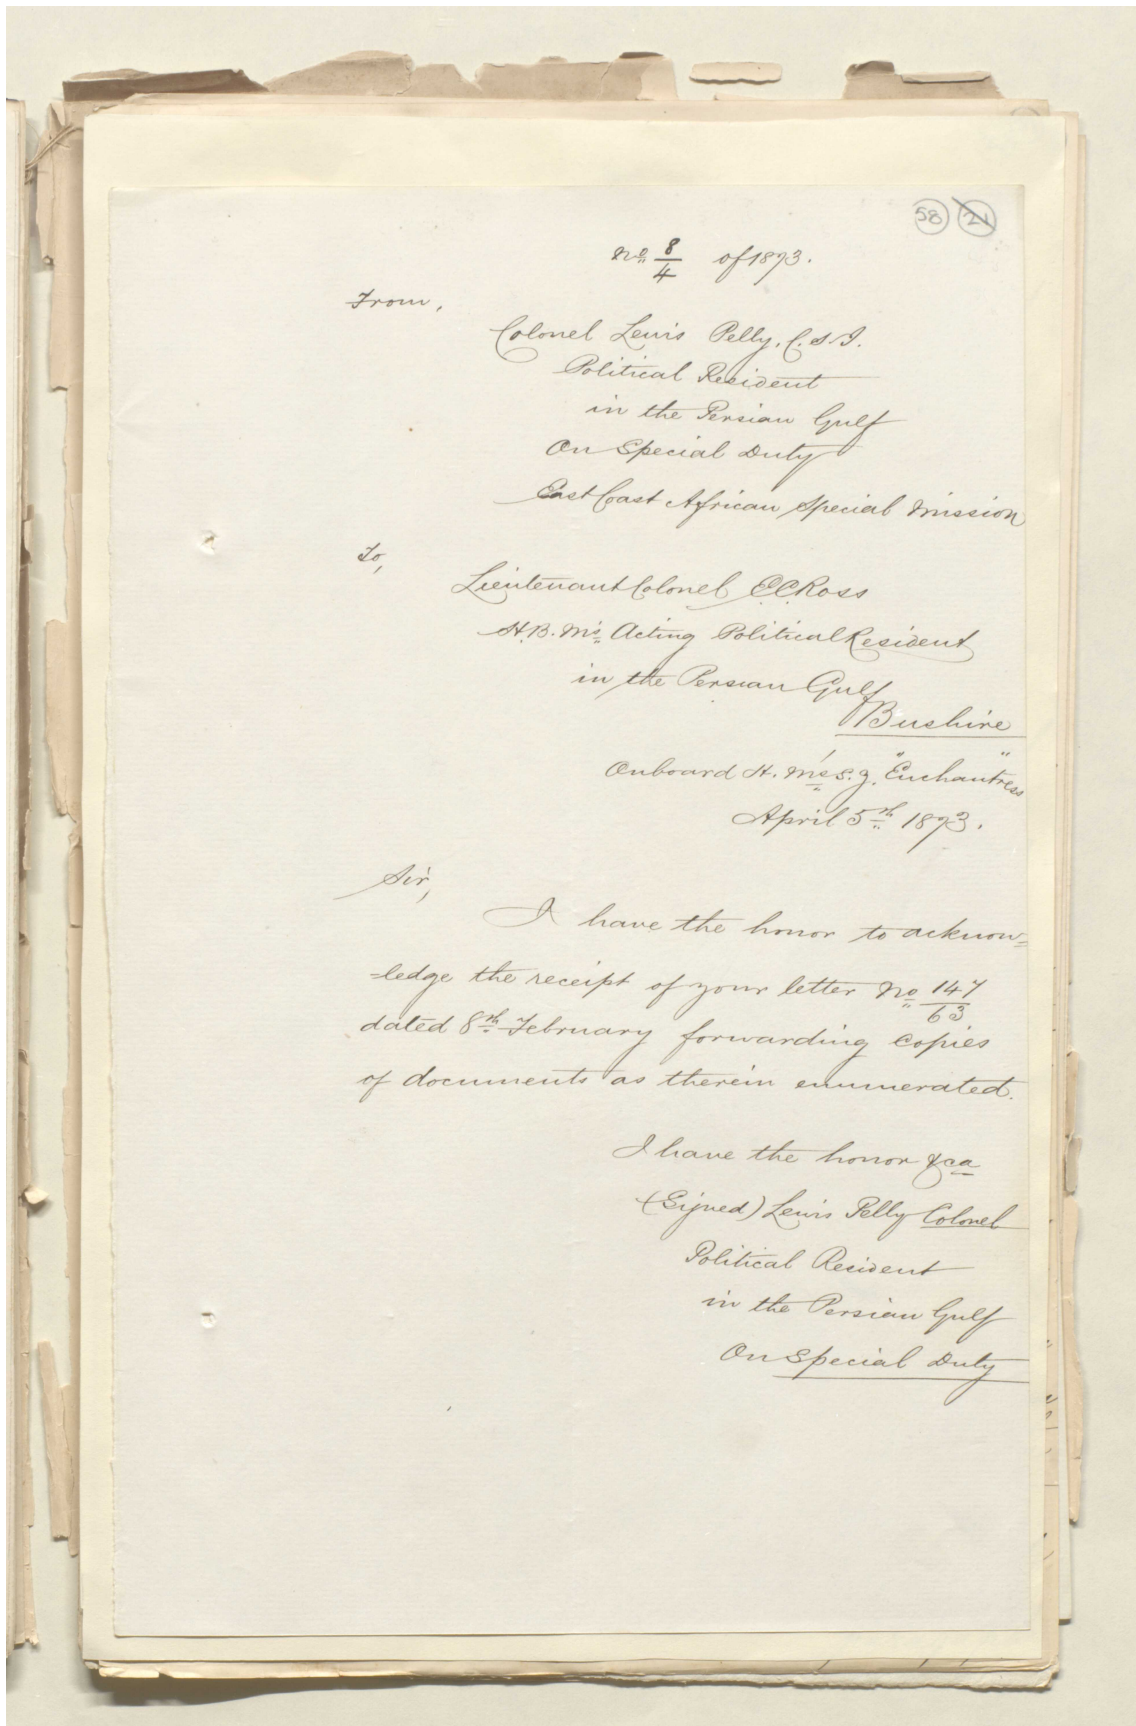 58 21
No 8/4 of 1873.
From,
Colonel Lewis Pelly, C.S.I.
Political Resident
in the Persian Gulf
On Special Duty
East Coast African Special Mission
To,
Lieutenant Colonel E.C. Ross
H.B.M's Acting Political Resident
in the Persian Gulf
Bushire
Onboard H.M's S.Y. "Enchantress"
April 5th 1873.
Sir,
I have the honor to acknow=
=ledge the receipt of your letter No 147/63
dated 8th February forwarding copies
of documents as therein enumerated.
I have the honor &ca
(Signed) Lewis Pelly Colonel
Political Resident
in the Persian Gulf
On Special Duty